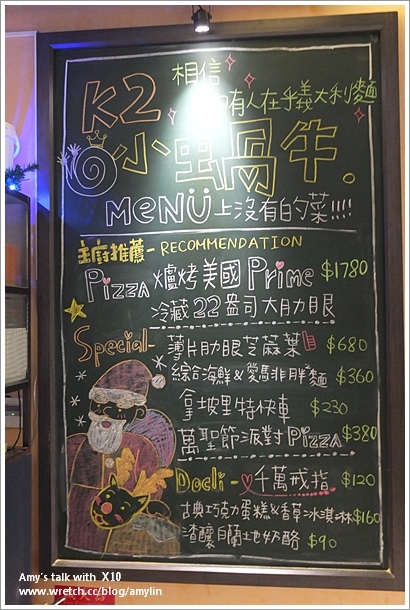 K2 相信
有人在乎義大利麵
小虫蝸牛.
MENU 上沒有的菜!!!!
主廚推薦-RECOMMENDATION
Pizza 爐烤美國Prime $1780
冷藏22盎司大肋眼
Special- 薄片肋眼芝麻葉 $680
綜合海鮮&愛馬非胖麵 $360
拿坡里特快車 $230
萬聖節派對Pizza $380
Docli- 千萬戒指 $120
古典巧克力蛋糕&香草冰淇淋 $160
渣釀白蘭地奶酪 $90
Amy's talk with X10
www.wretch.cc/blog/amylin